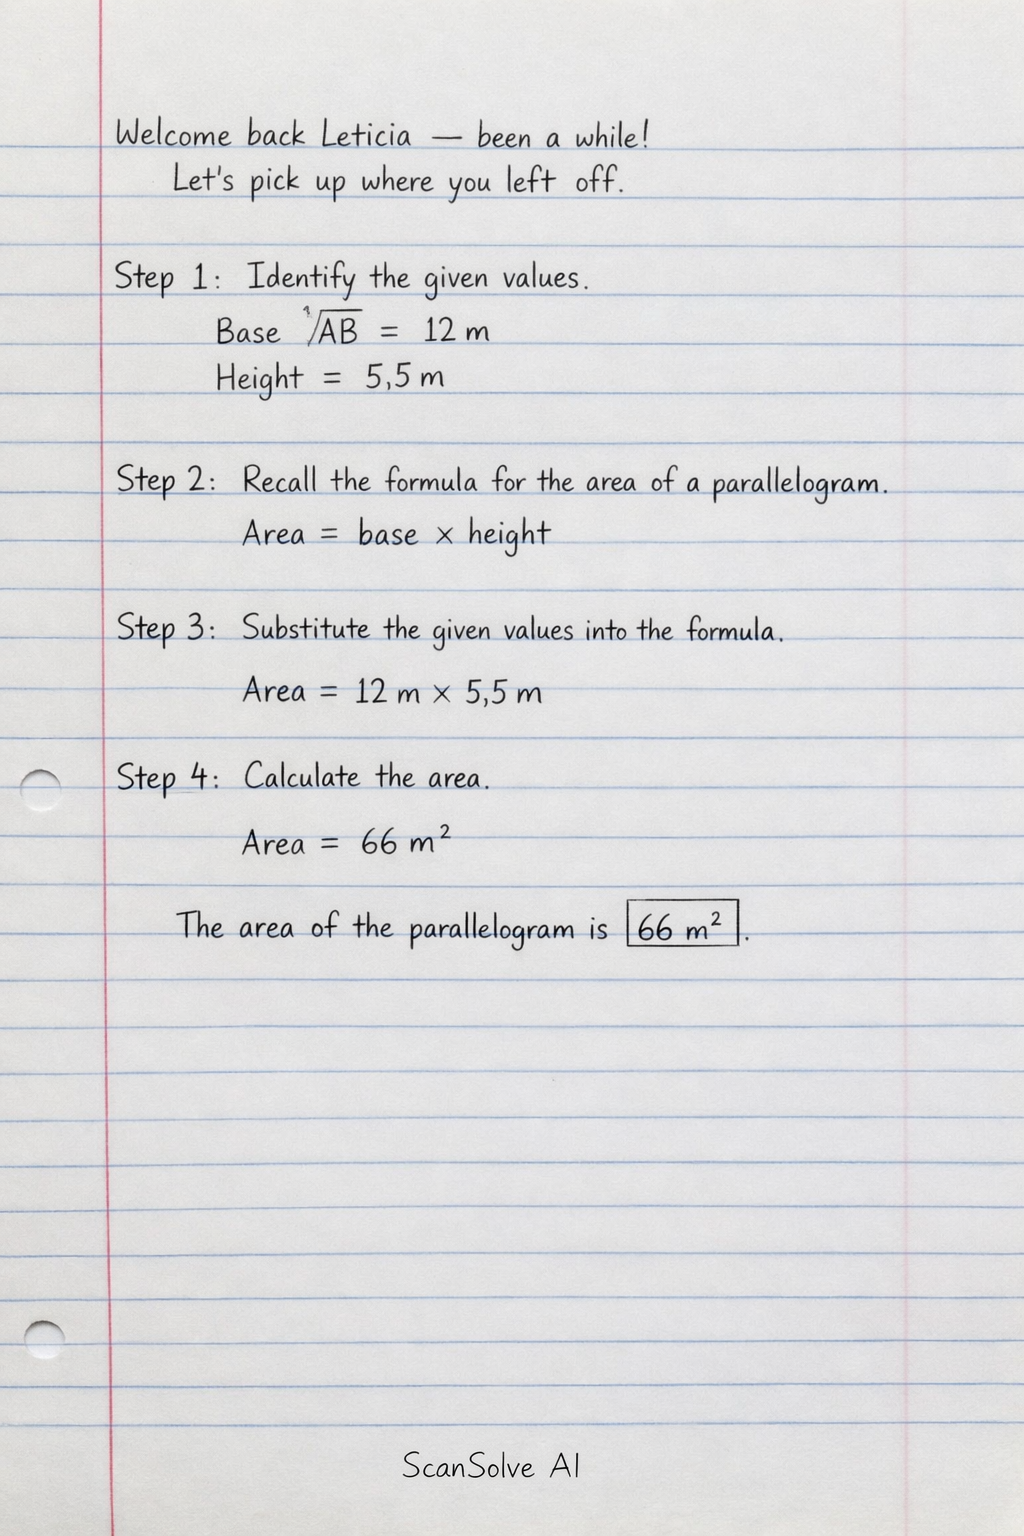 Welcome back Leticia — been a while!
Let's pick up where you left off.
Step 1: Identify the given values.
Base √AB = 12 m
Height = 5,5 m
Step 2: Recall the formula for the area of a parallelogram.
Area = base × height
Step 3: Substitute the given values into the formula.
Area = 12 m × 5,5 m
Step 4: Calculate the area.
Area = 66 m²
The area of the parallelogram is 66 m².
ScanSolve AI